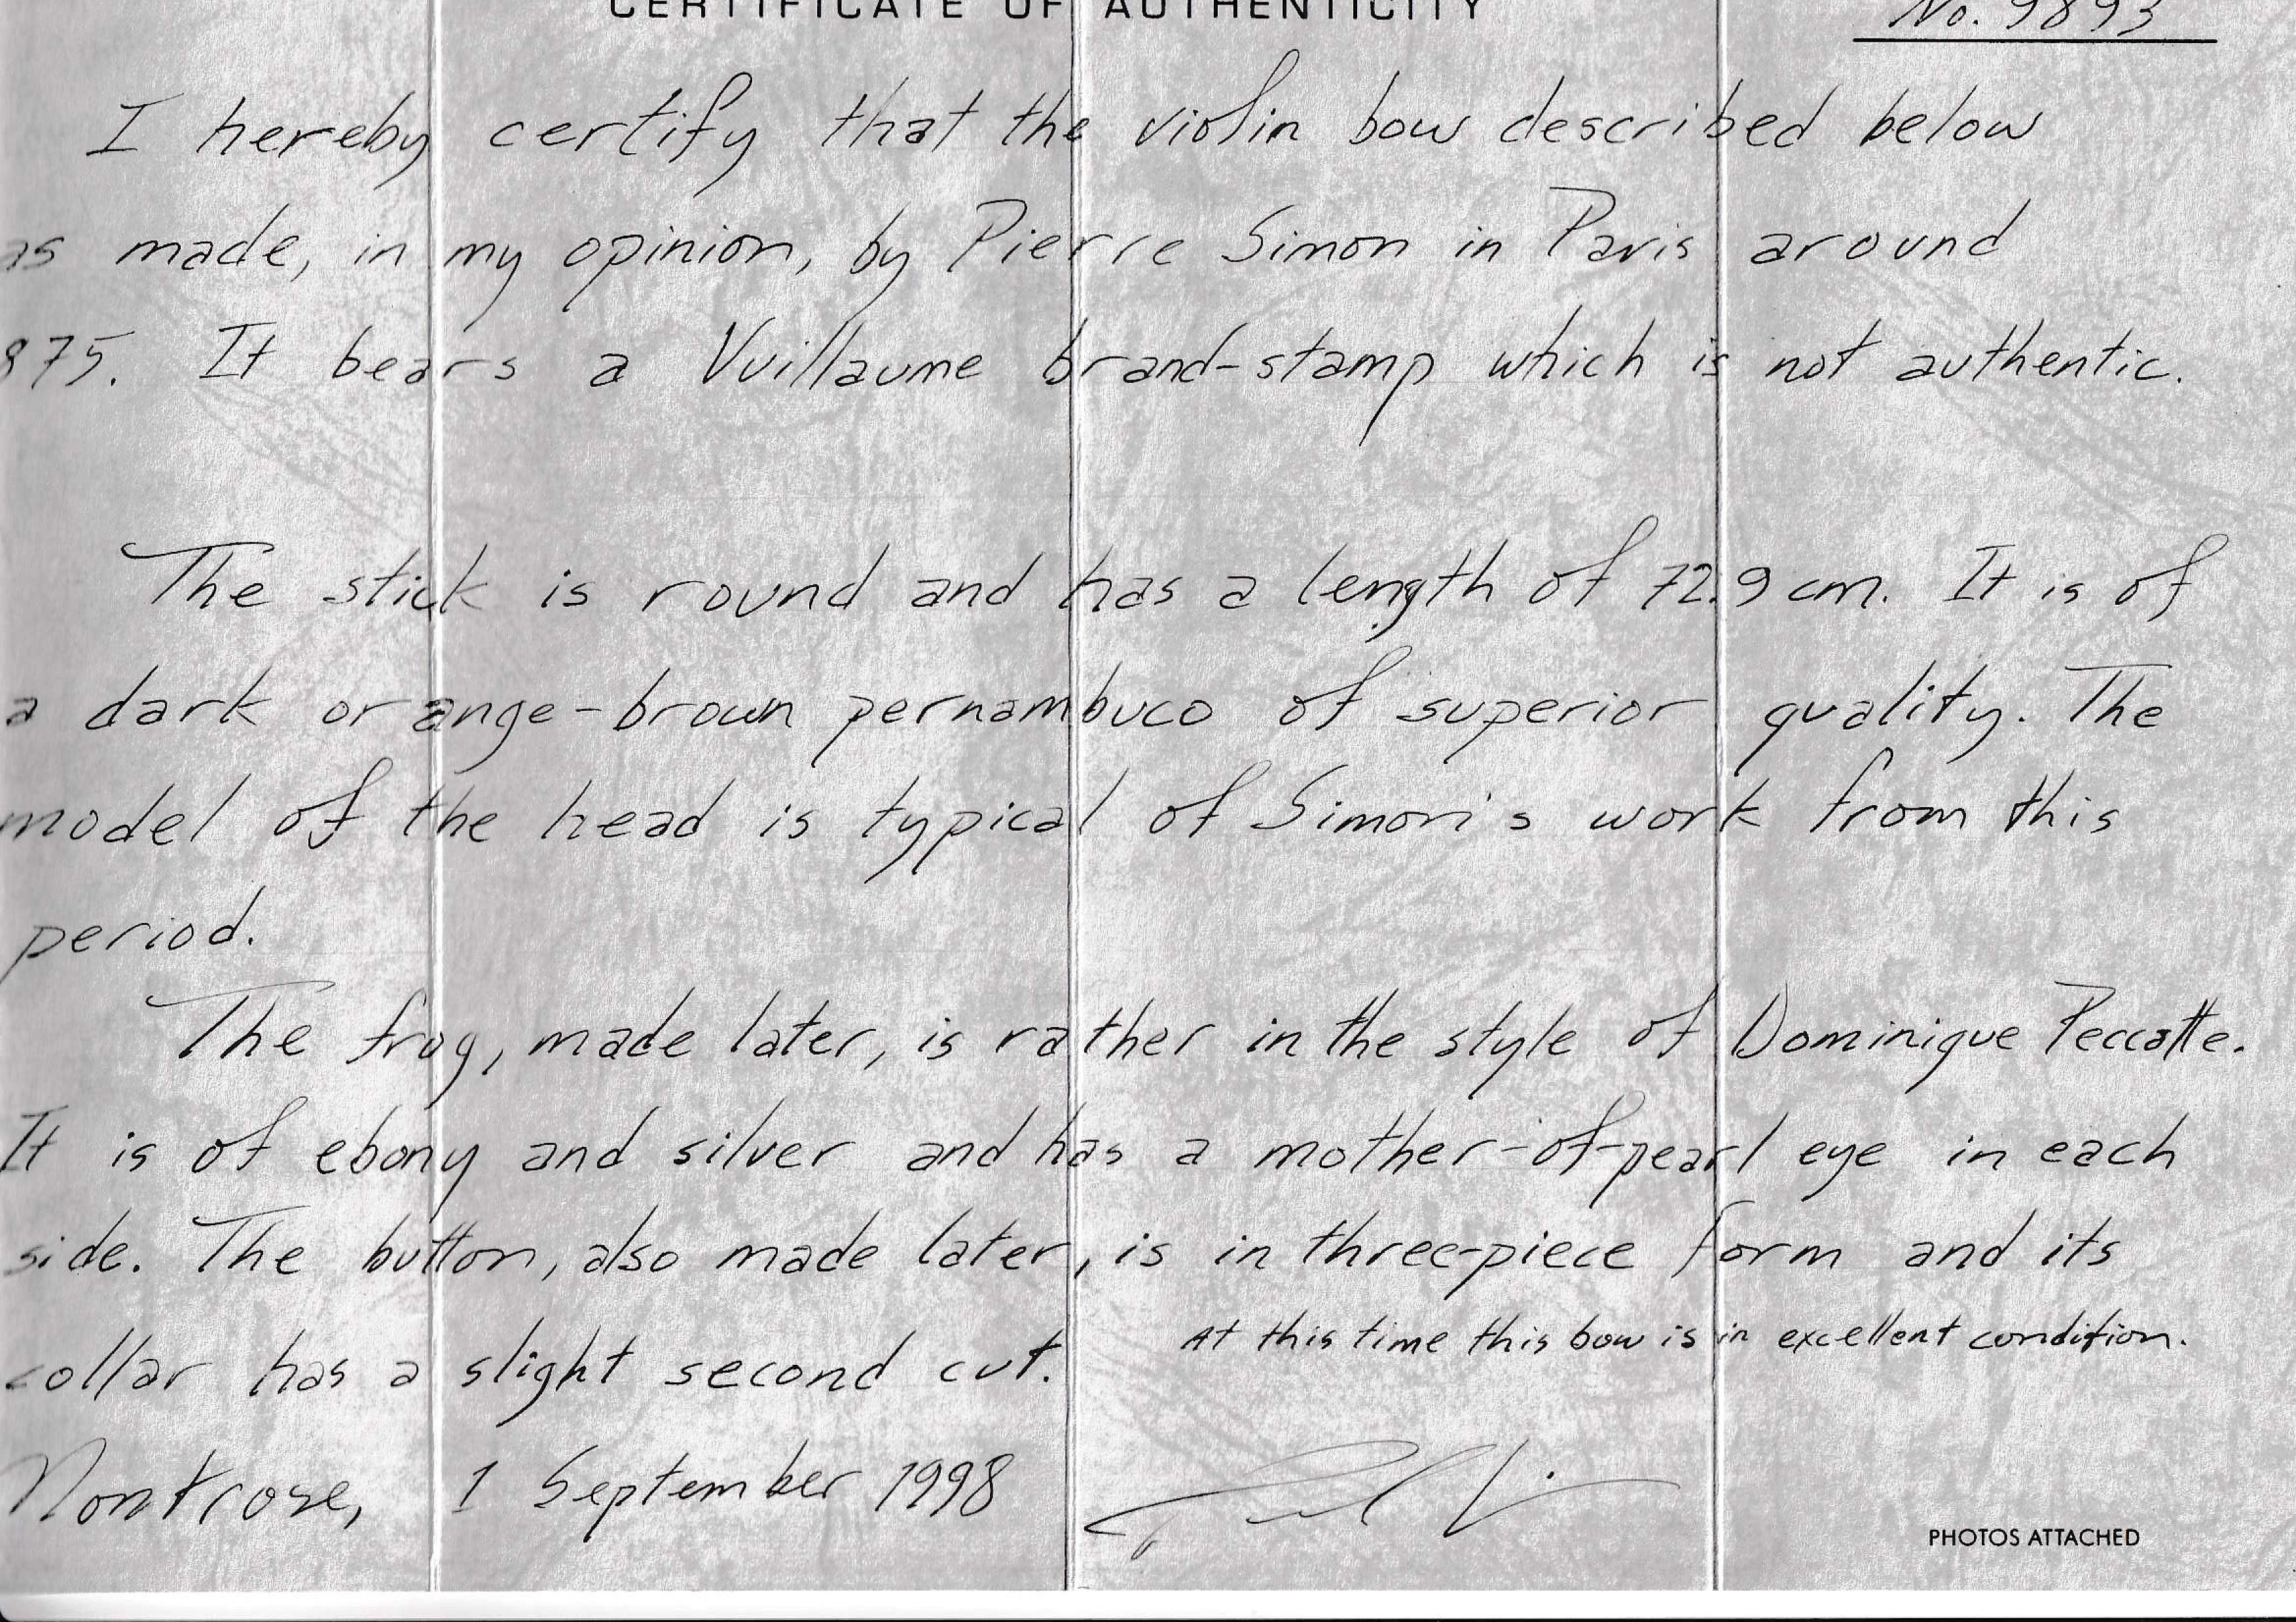 CERTIFICATE OF AUTHENTICITY
No. 9893
I hereby certify that the violin bow described below
as made, in my opinion, by Pierre Simon in Paris around
875. It bears a Vuillaume brand-stamp which is not authentic.
The stick is round and has a length of 72.9 cm. It is of
a dark orange-brown pernambuco of superior quality. The
model of the head is typical of Simon's work from this
period.
The frog, made later, is rather in the style of Dominique Peccatte.
It is of ebony and silver and has a mother-of-pearl eye in each
side. The button, also made later, is in three-piece form and its
collar has a slight second cut.
At this time this bow is in excellent condition.
Montrose, 1 September 1998
PHOTOS ATTACHED